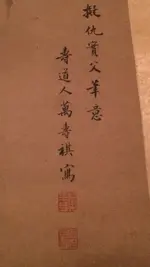 擬仇實父筆意
壽道人萬壽祺寫